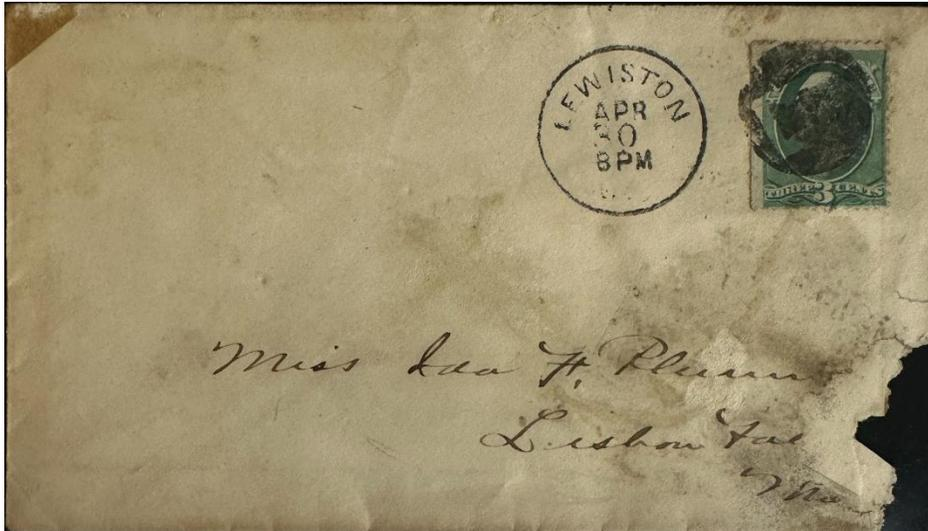 LEWISTON
APR
30
8 PM
THREE 3 CENTS
Miss Ida F. Plumm
Lisbon Fal
Me